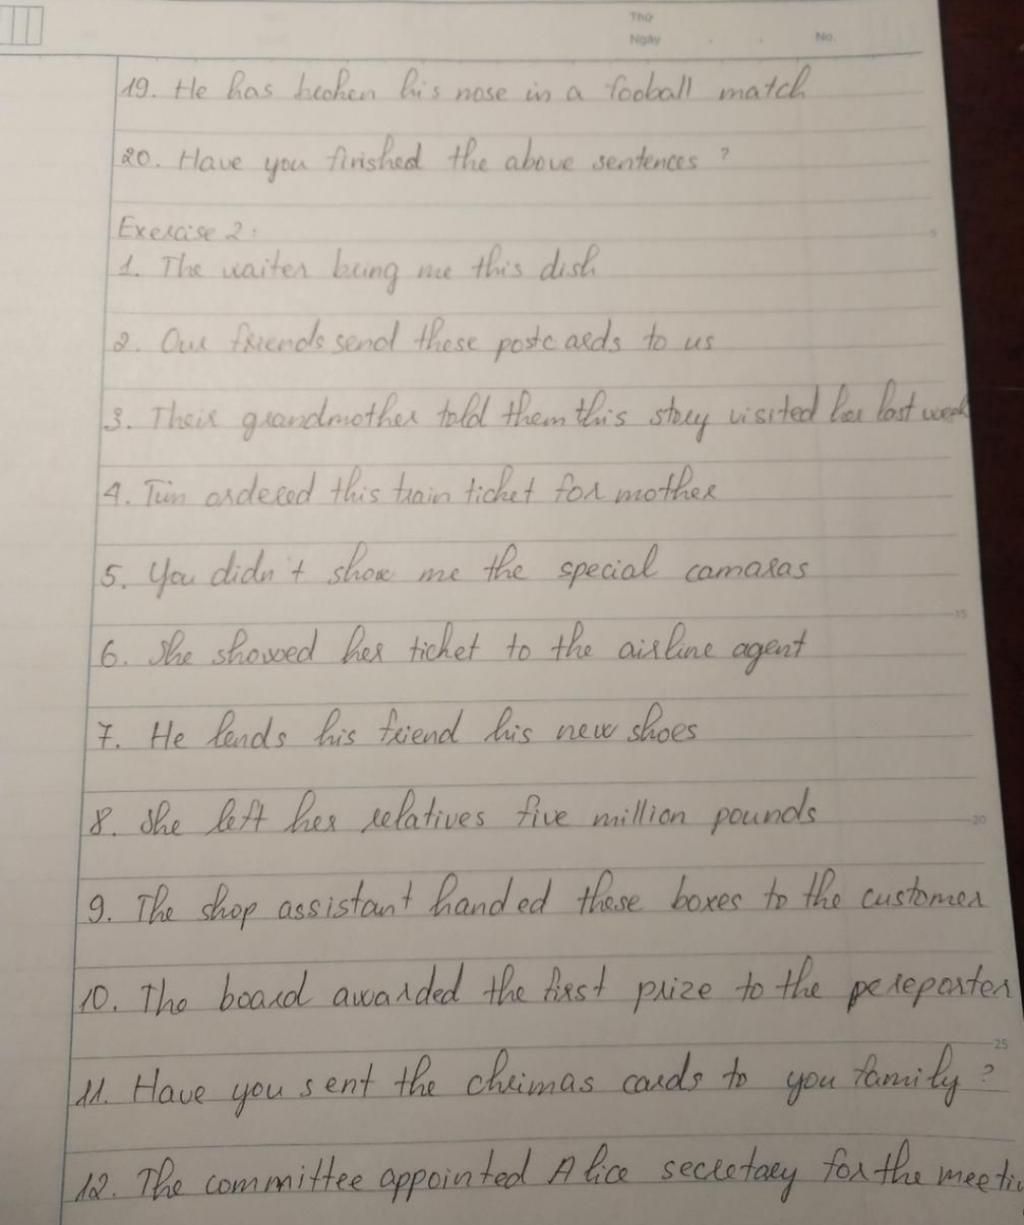 Thứ
Ngày No.
19. He has broken his nose in a fooball match
20. Have you finished the above sentences ?
Exercise 2:
1. The waiter bring me this dish
2. Our friends send these postcards to us
3. Their grandmother told them this story visited her last week
4. Tim ordered this train ticket for mother
5. You didn't show me the special camaras
6. She showed her ticket to the airline agent
7. He lends his friend his new shoes
8. She left her relatives five million pounds
9. The shop assistant handed these boxes to the customer
10. The board awarded the first prize to the pe reporter
11. Have you sent the chrimas cards to you family ?
12. The committee appointed Alice secretary for the meetin
5
15
20
25